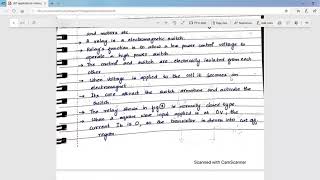 and motors etc
→ A relay is a electromagnetic switch.
→ Relay's function is to allow a low power control voltage to
operate a high power switch.
→ The control and switch are electrically isolated from each
other
→ When voltage is applied to the coil it becomes an
electromagnet.
→ Its core attract the switch armature and activate the
switch.
→ The relay shown in fig ① is normally closed type.
→ When a square wave input applied is at 0V, the
current Ib is 0, so the transistor is driven into cut off
region.
Scanned with CamScanner